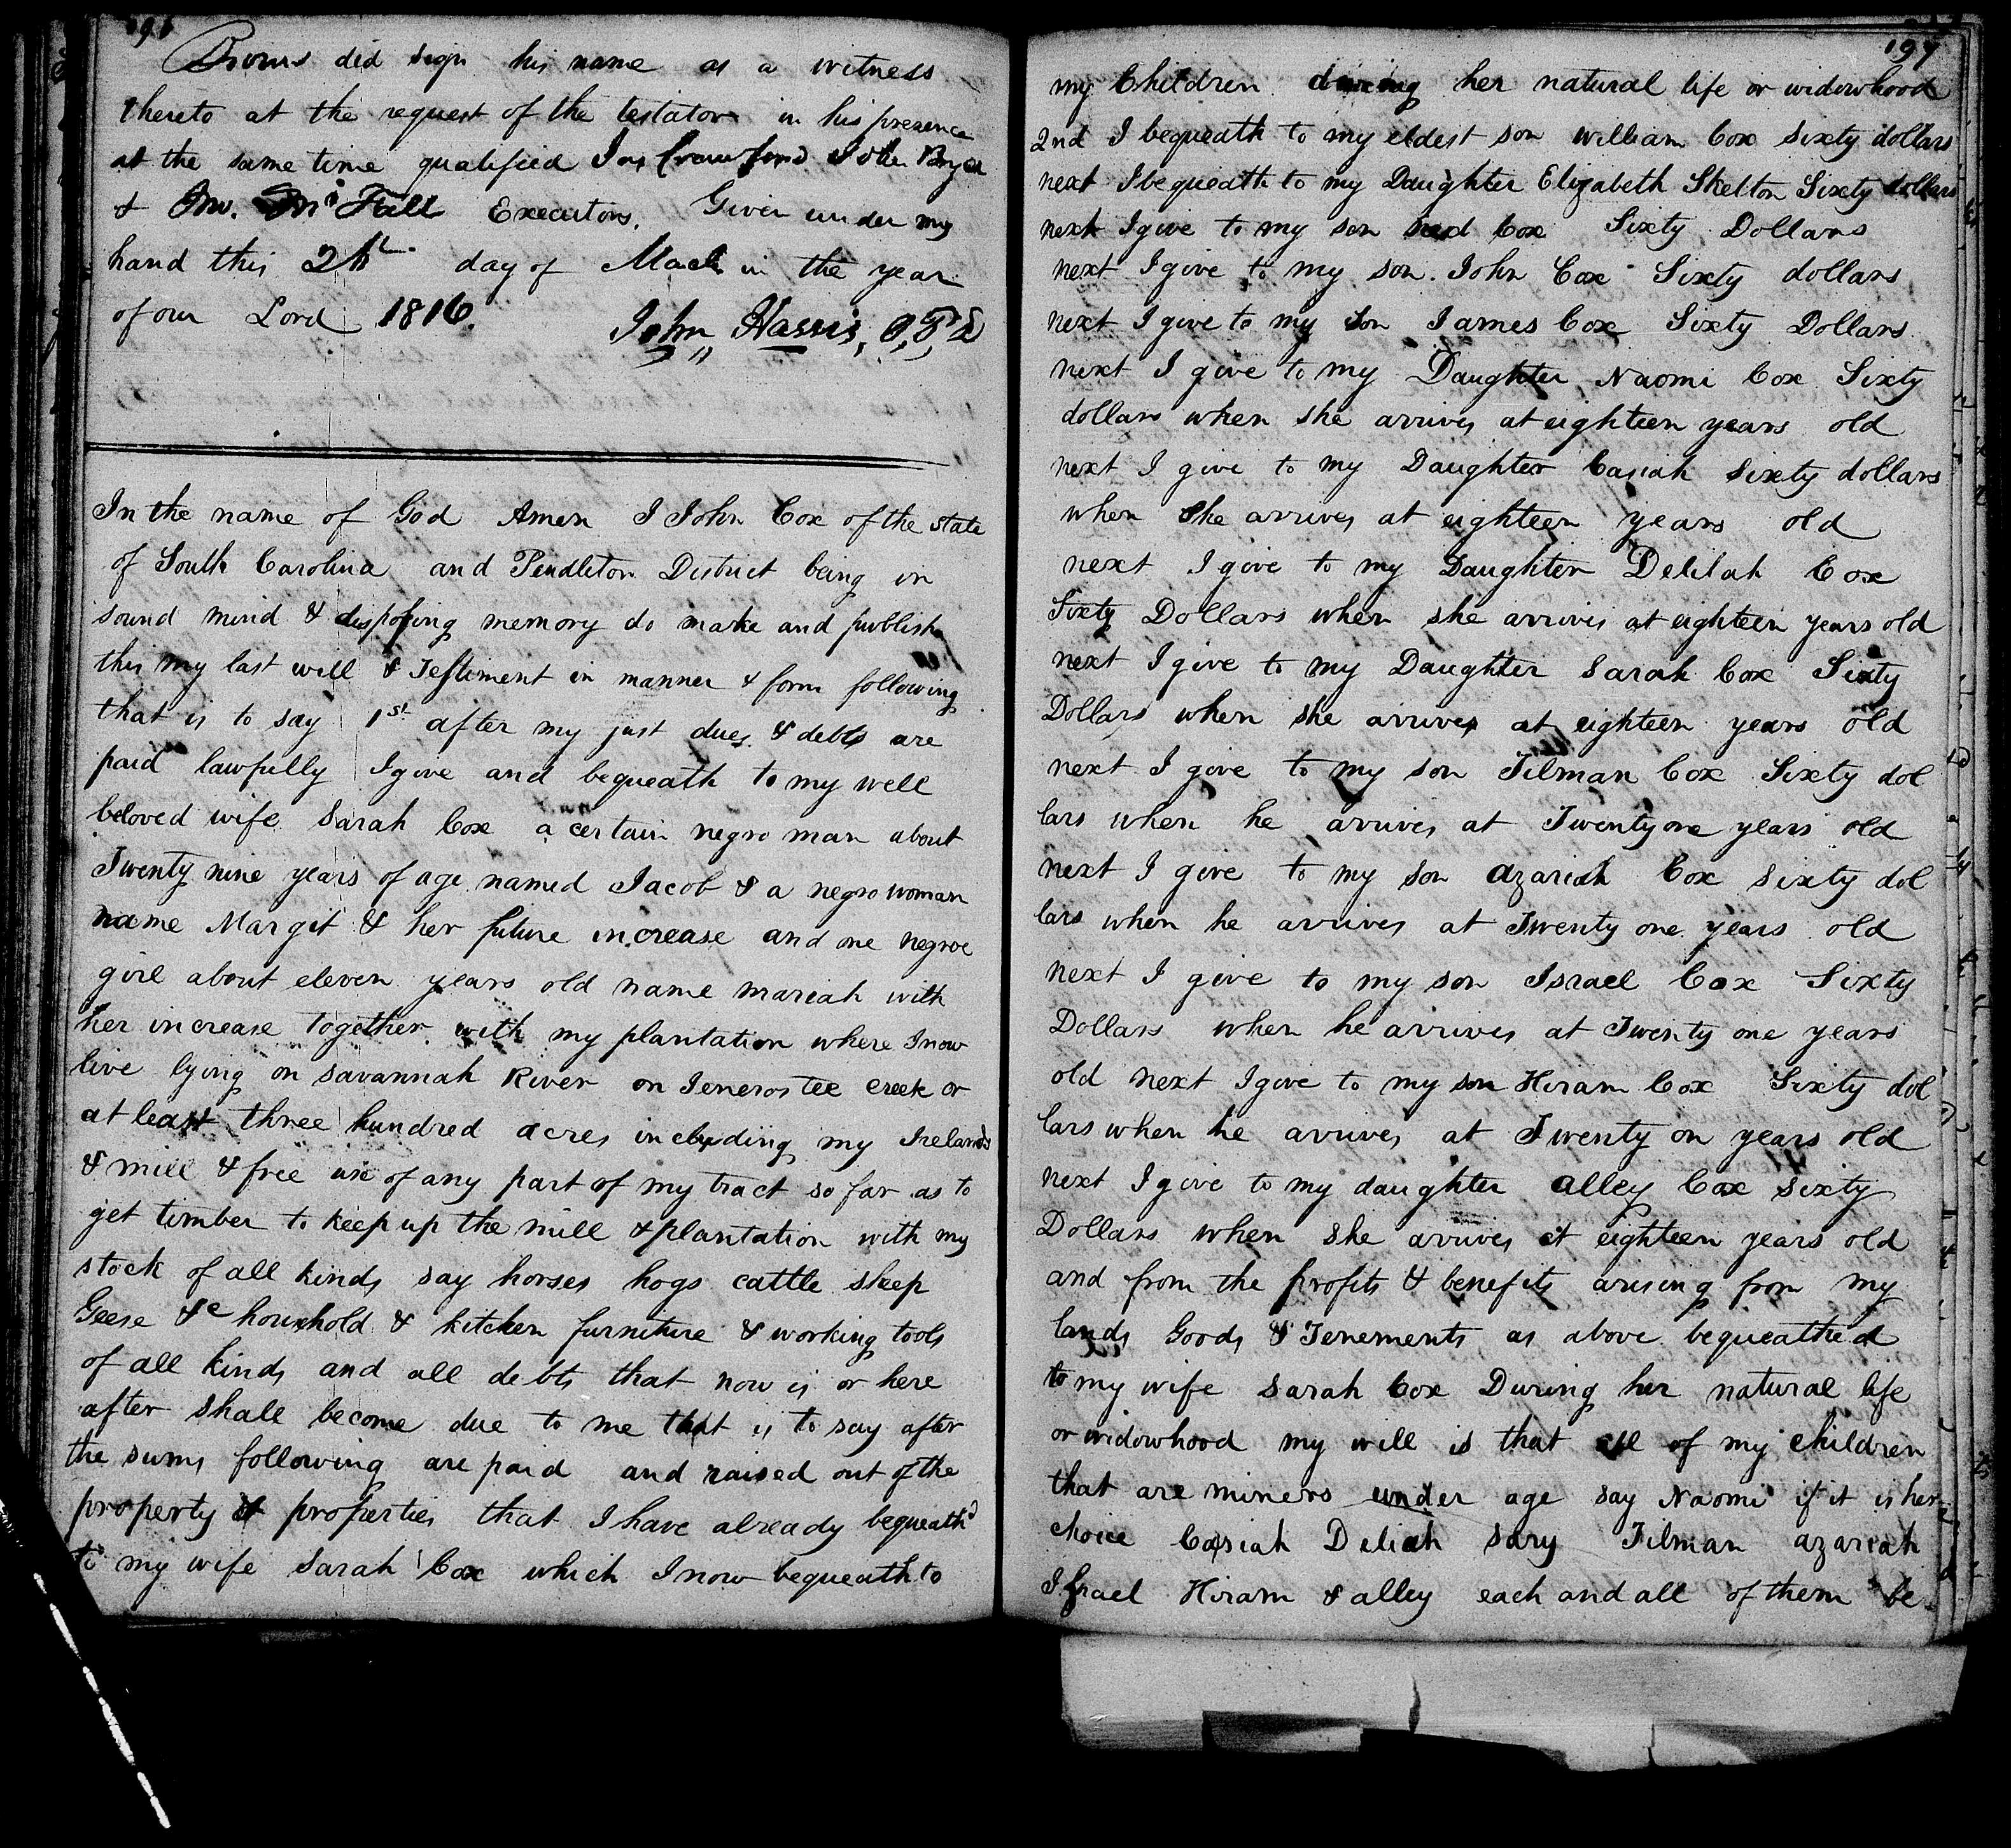 196
Bowns did sign his name as a witness
thereto at the request of the testator in his presence
at the same time qualified Jas Crawford John Bryce
& Jno. Mc Fall Executors. Given under my
hand this day of March in the year
of our Lord 1816. John Harris, O,P,D
In the name of God Amen I John Cox of the State
of South Carolina and Pendleton District being in
sound mind & disposing memory do make and publish
this my last will & Testiment in manner & form following
that is to say 1st after my just dues & debts are
paid lawfully I give and bequeath to my well
beloved wife Sarah Cox a certain negro man about
Twenty nine years of age named Jacob & a negro woman
name Margit & her future increase and one negroe
girl about eleven years old name mariah with
her increase together with my plantation where I now
live lying on Savannah River on Jenerostee creek or
at least three hundred acres including my Irelands
& mill & free use of any part of my tract so far as to
get timber to keep up the mill & plantation with my
stock of all kinds say horses hogs cattle sheep
Geese &c houshold & kitchen furniture & working tools
of all kinds and all debts that now is or here
after shall become due to me that is to say after
the sums following are paid and raised out of the
property or properties that I have already bequeathd
to my wife Sarah Cox which I now bequeath to
197
my Children during her natural life or widowhood
2nd I bequeath to my eldest son William Cox Sixty dollars
next I bequeath to my Daughter Elizabeth Skelton Sixty dollars
next I give to my son Cox Sixty Dollars
next I give to my son John Cox Sixty dollars
next I give to my Son James Cox Sixty Dollars
next I give to my Daughter Naomi Cox Sixty
dollars when she arrives at eighteen years old
next I give to my Daughter Casiah Sixty dollars
when She arrives at eighteen years old
next I give to my Daughter Delilah Cox
Sixty Dollars when she arrives at eighteen years old
next I give to my Daughter Sarah Cox Sixty
Dollars when she arrives at eighteen years old
next I give to my son Tilman Cox Sixty dol
lars when he arrives at Twenty one years old
next I give to my Son azariah Cox Sixty dol
lars when he arrives at Twenty one years old
next I give to my son Israel Cox Sixty
Dollars when he arrives at Twenty one years
old next I give to my son Hiram Cox Sixty dol
lars when he arrives at Twenty on years old
next I give to my daughter alley Cox Sixty
Dollars when She arrives at eighteen years old
and from the profits & benefits arising from my
lands Goods & Tenements as above bequeathed
to my wife Sarah Cox During her natural life
or widowhood my will is that all of my children
that are miners under age say Naomi if it is her
choice Casiah Deliah Sary Tilman azariah
Israel Hiram & alley each and all of them be